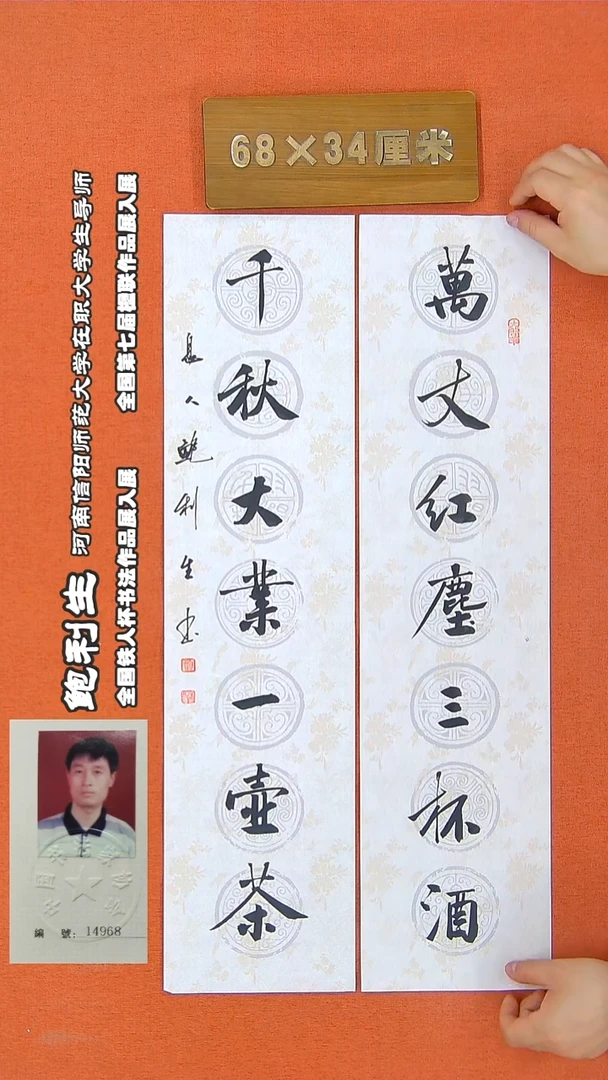 68×34厘米
萬丈红塵三杯酒
千秋大業一壶茶
息人鲍利生书
鲍利生 河南信阳师范大学在职大学生导师
全国铁人杯书法作品展入展 全国第七届楹联作品展入展
編 號: 14968